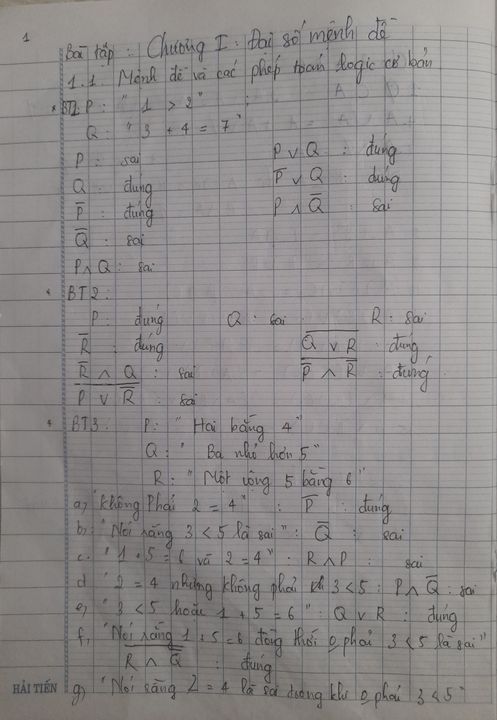 1
Bài tập : Chương I : Đại số mệnh đề
1.1. Mệnh đề và các phép toán logic cơ bản
* BT1. P : " 1 > 2 " ;
Q : " 3 + 4 = 7 "
P : sai P ∨ Q : đúng
Q : đúng P̅ ∨ Q : đúng
P̅ : đúng P ∧ Q̅ : sai
Q̅ : sai
P ∧ Q : sai
* BT2 :
P : đúng Q : sai R : sai
R̅ : đúng \overline{Q ∨ R} : đúng
R̅ ∧ Q : sai \overline{P̅ ∧ R̅} : đúng
\overline{P ∨ R̅} : sai
* BT3 : P : " Hai bằng 4 "
Q : " Ba nhỏ hơn 5 "
R : " Một cộng 5 bằng 6 "
a, "Không phải 2 = 4" : P̅ : đúng
b, "Nói rằng 3 < 5 là sai" : Q̅ : sai
c. "1 + 5 = 6 và 2 = 4" . R ∧ P : sai
d "2 = 4 nhưng không phải 3 < 5 : P ∧ Q̅ : sai
e, "3 < 5 hoặc 1 + 5 = 6" : Q ∨ R : đúng
f, "Nói rằng 1 + 5 = 6 đồng thời phải 3 < 5 là sai"
\overline{R ∧ Q̅} : đúng
HẢI TIẾN g, "Nói rằng 2 = 4 là sai khi phải 3 < 5"